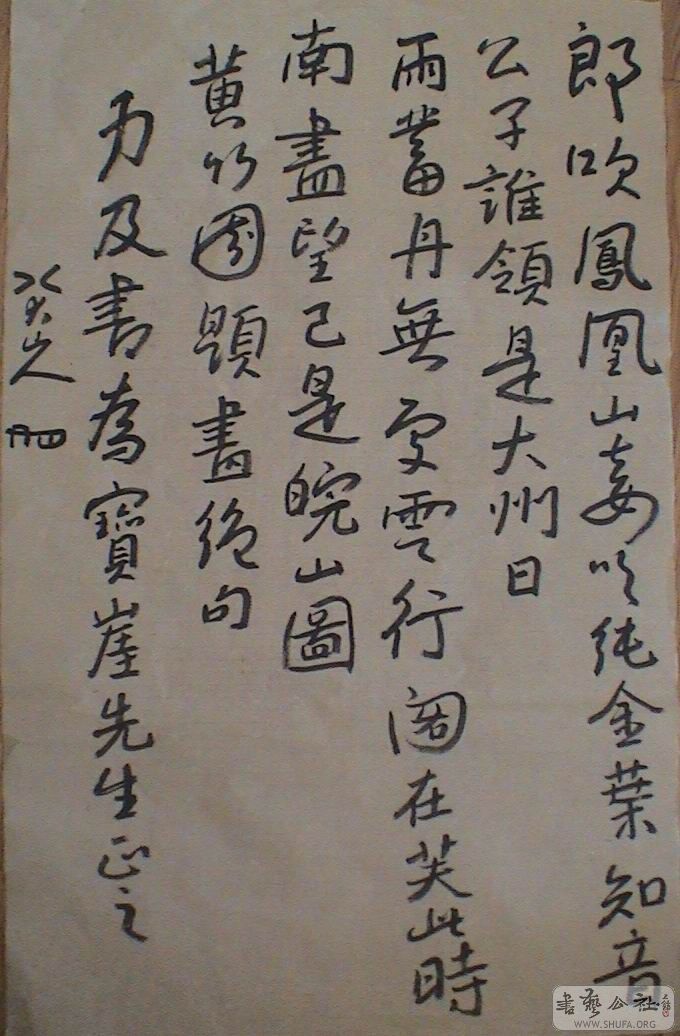 郎吹鳳凰山妾吹純金葉知音
公子誰領是大州日
雨蓄丹無處雲行闊在芙此時
南盡望已是皖山圖
黄竹園題畫絕句
及書為寶崖先生正之
八大山人
書藝公社
WWW.SHUFA.ORG